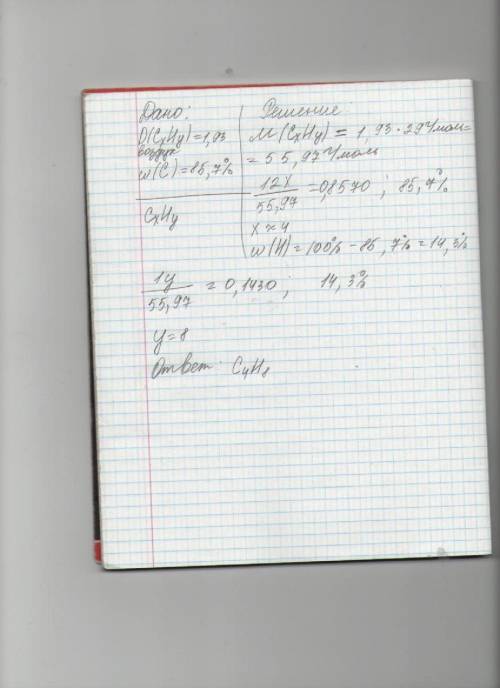 Дано:
D(CxHy)=1,93
воздух
w(C)=85,7%
CxHy
Решение
M(CxHy) = 1,93·29 г/моль=
= 55,97 г/моль
12x/55,97 = 0,8570 ; 85,7%
x≈4
w(H)=100% - 85,7% = 14,3%
1y/55,97 = 0,1430 ; 14,3%
y=8
Ответ: C4H8